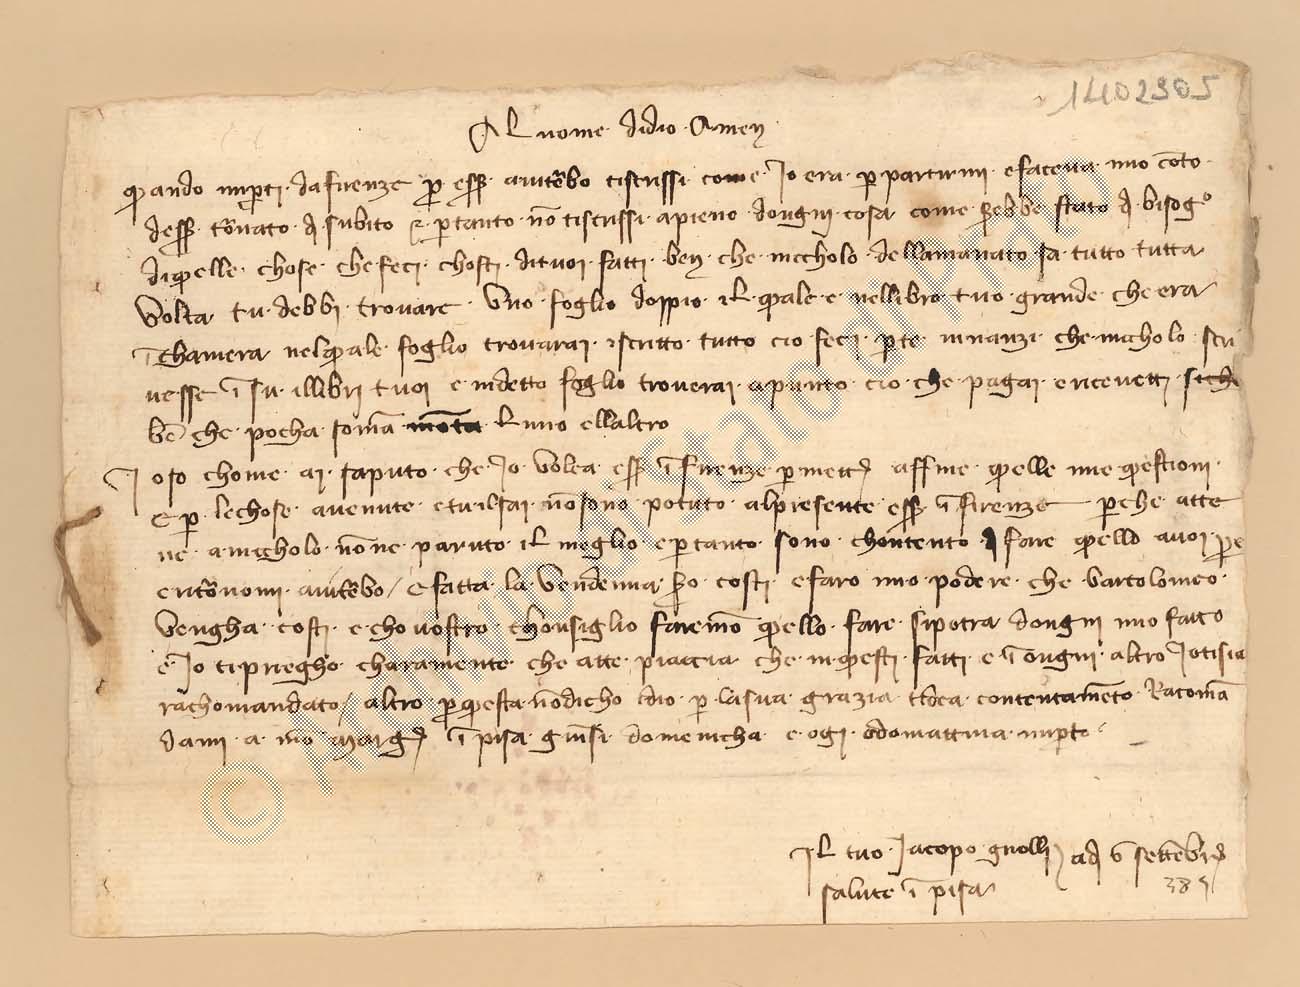 1402905
Al nome didio Amen
quando mi parti da firenze per essere a viterbo ti scrissi come Io era per partirmi e faceva mio conto
dessere tornato di subito e pertanto non ti scrissi apieno dongni cosa come sarebbe stato di bisogno
di quelle chose che feci chosti di tuoi fatti ben che nicholo dellamanato sa tutto tutta
volta tu debbi trovare uno foglio doppio il quale e nellibro tuo grande che era
in chamera nel quale foglio trovarai iscritto tutto cio feci per te innanzi che nicholo scri
vesse in su illibri tuoi e indetto foglio troverai apunto cio che pagai e ricevetti siche
bene che pocha somma monta luno ellaltro
Io so chome ai saputo che Io volea essere in firenze per mettere affine quelle mie questioni
e per le chose avenute tu il sai non sono potuto al presente essere in firenze perche a tte
ne a nicholo none paruto il meglio e pertanto sono chontento di fare quello a voi
e ritornomi a viterbo / e fatta la vendemia saro costi e faro mio podere che bartolomeo
vengha costi e cho vostro chonsiglio faremo quello fare si potra dongni mio fatto
e Io ti priegho charamente che a tte piaccia che in questi fatti e in ongni altro Io ti sia
rachomandato / altro per questa non dicho idio per la sua grazia ti dea contentamento Racoman
dami a mona margherita in pisa giunsi domenicha e ogi domattina mi parto
Il tuo Jacopo gnolli adi 6 settembre
salute in pisa
385
© Archivio di Stato di Prato